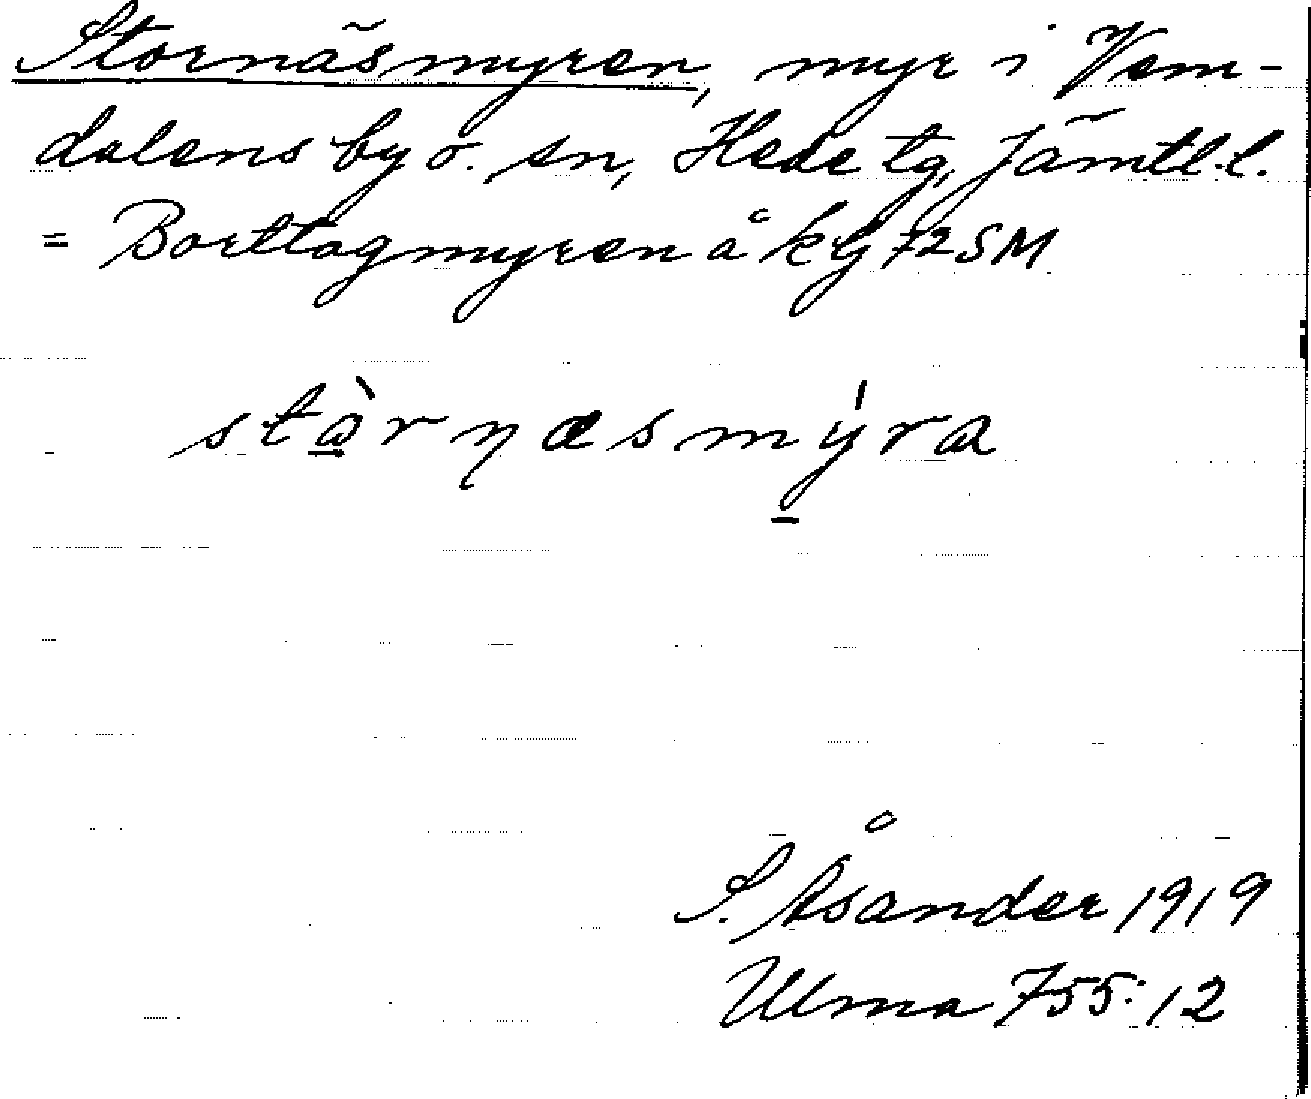 Stornäsmyren, myr i Vem-
dalens by o. sn, Hede tg, Jämtl.l.
= Borttagmyren å k bl 72SM
stàrnæsmýra
S. Åsander 1919
Ulma 755:12